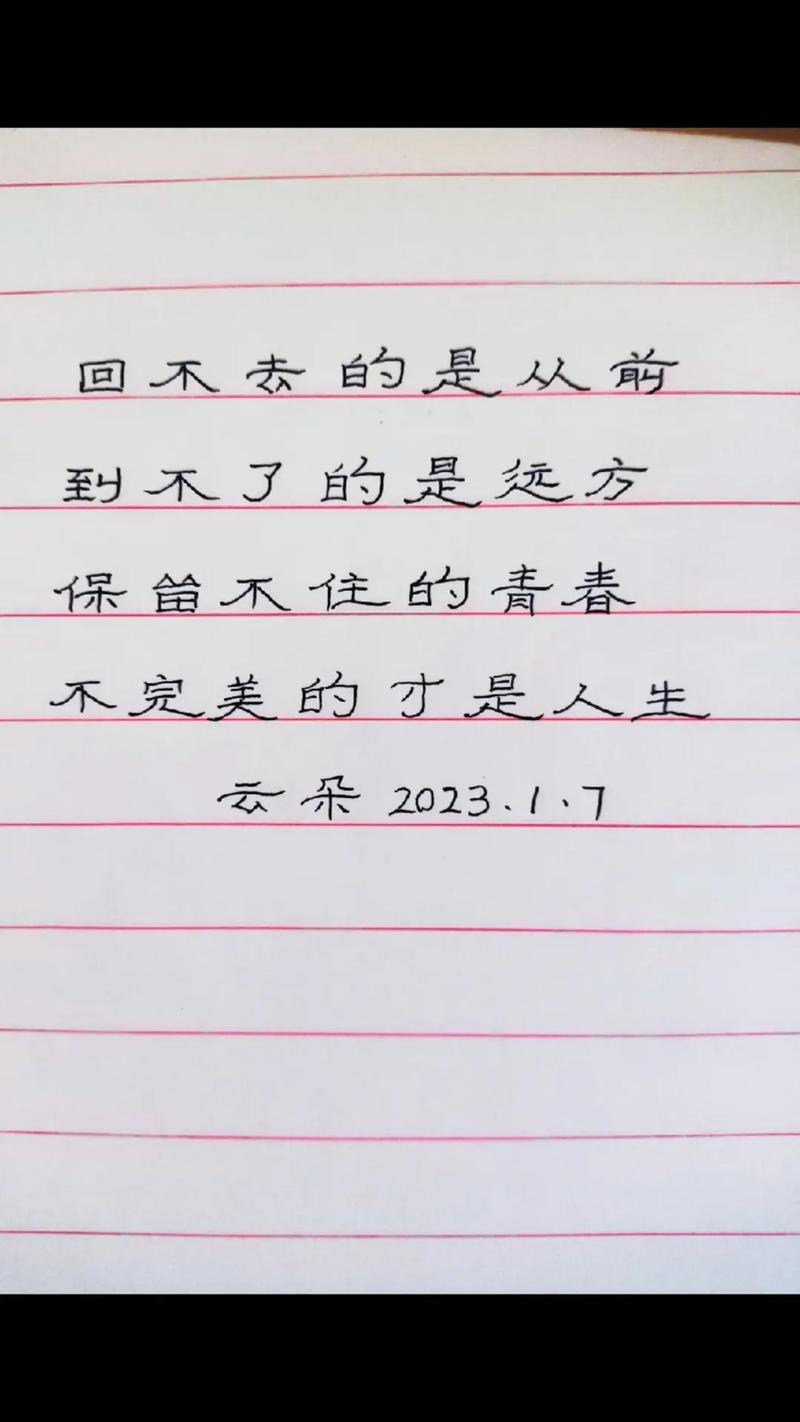 回不去的是从前
到不了的是远方
保笛不住的青春
不完美的才是人生
云朵 2023.1.7